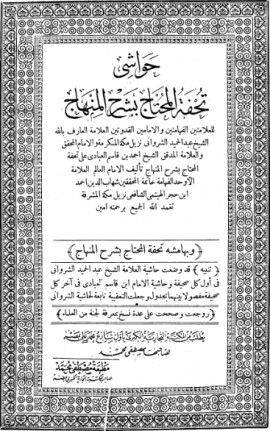 حواشى
تحفة المحتاج بشرح المنهاج
للعلامتين الفهامتين والامامين القدوتين العلامة العارف بالله
الشيخ عبد الحميد الشروانى نزيل مكة المكرمة والامام المحقق
والعلامة المدقق الشيخ احمد بن قاسم العبادى على تحفة
المحتاج بشرح المنهاج تأليف الامام العالم العلامة
الاوحد الفهامة خاتمة المحققين شهاب الدين احمد
ابن حجر الهيتمى الشافعى نزيل مكة المشرفة
تغمد الله الجميع برحمته امين
﴿ وبهامشه تحفة المحتاج بشرح المنهاج ﴾
﴿ تنبيه ﴾ قد وضعت حاشية العلامة الشيخ عبد الحميد الشروانى
فى أول كل صحيفة وحاشية الامام ابن قاسم العبادى فى آخر كل
صحيفة مفصولا بينهما بجدول وجعلت التعقيبة تابعة لحاشية الشروانى
﴿ روجعت وصححت على عدة نسخ بمعرفة لجنة من العلماء ﴾
يطلب من المكتبة التجارية الكبرى بأول شارع محمد على بمصر
لصاحبها مصطفى محمد
مطبعة مصطفى محمد